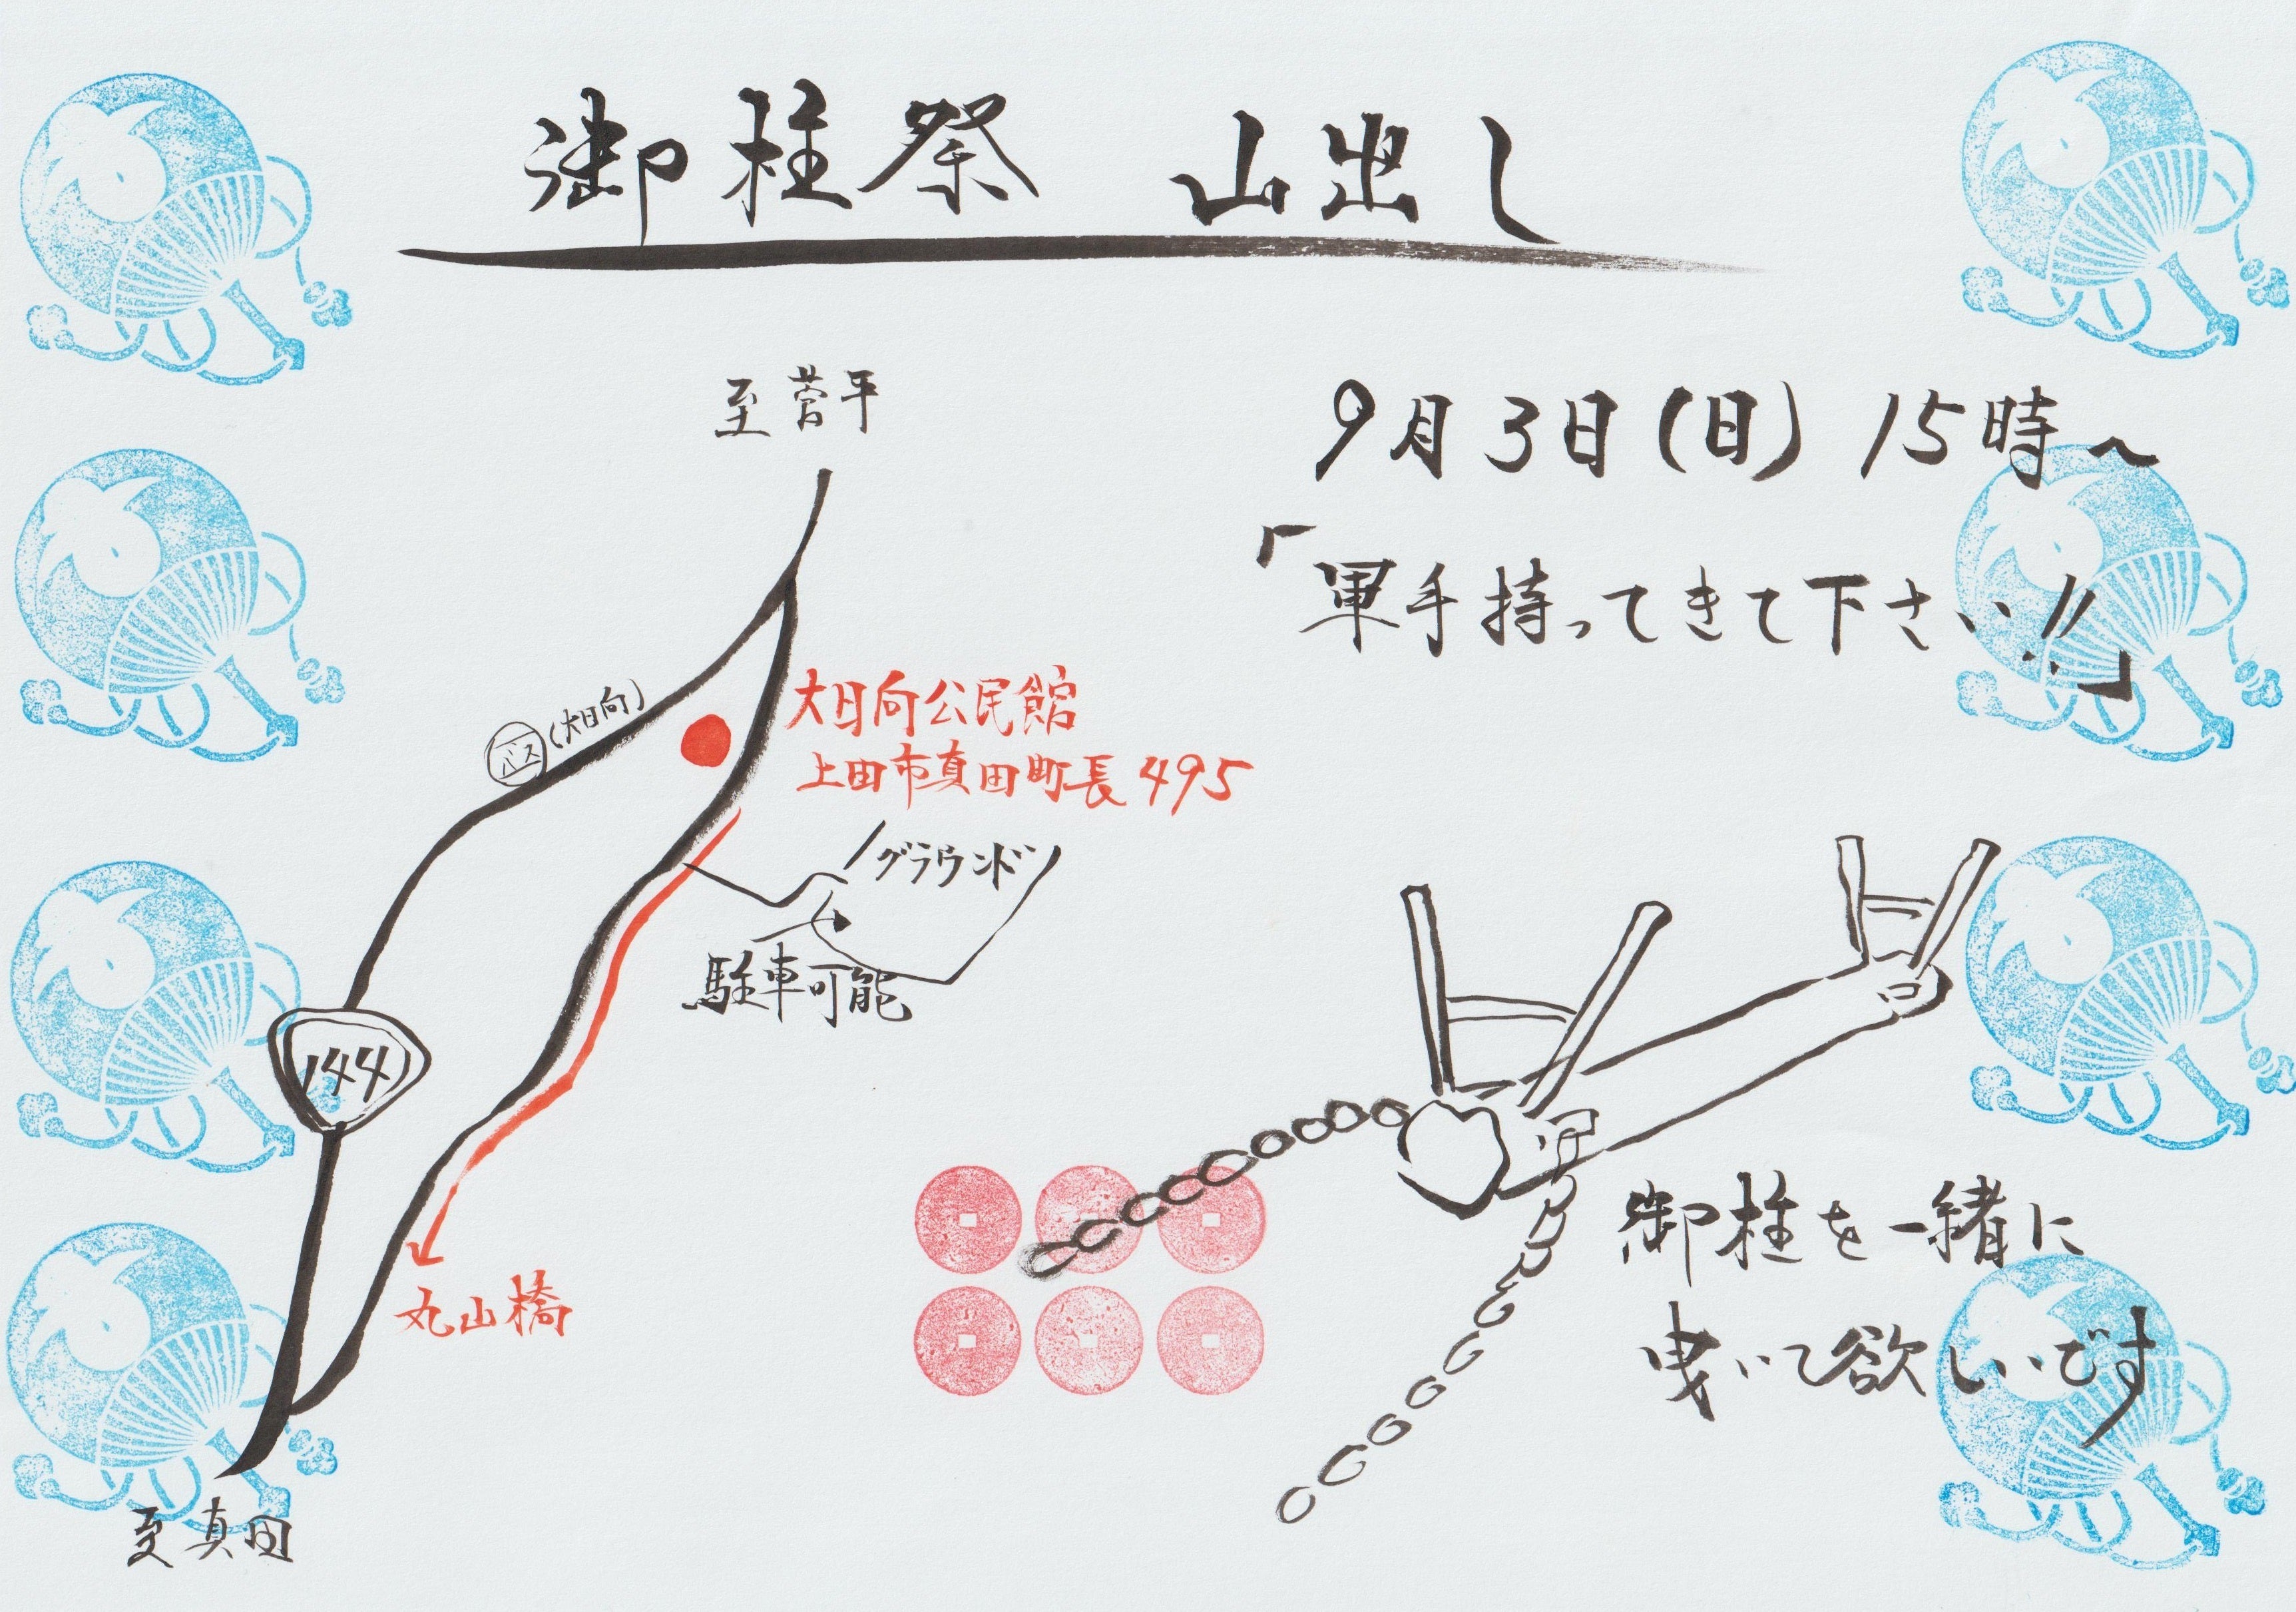 御柱祭 山出し
9月3日(日) 15時~
「軍手持ってきて下さい!!」
至菅平
バス(大日向)
大日向公民館
上田市真田町長495
グラウンド
駐車可能
144
丸山橋
至真田
御柱を一緒に
曳いて欲しいです